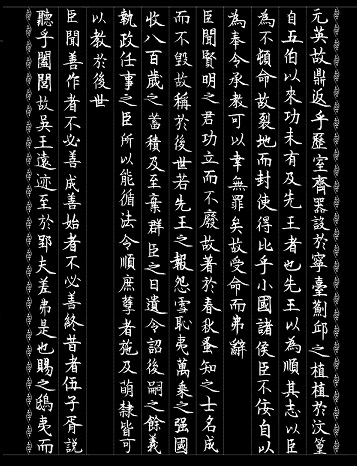 元英故鼎返乎歷室齊器設於寧臺薊邱之植植於汶篁
自五伯以來功未有及先王者也先王以為順其志以臣
為不頓命故裂地而封使得比乎小國諸侯臣不佞自以
為奉令承教可以幸無罪矣故受命而弗辭
臣聞賢明之君功立而不廢故著於春秋蚤知之士名成
而不毀故稱於後世若先王之報怨雪恥夷萬乘之強國
收八百歲之蓄積及至棄群臣之日遺令詔後嗣之餘義
執政任事之臣所以能循法令順庶孽者施及萌隸皆可
以教於後世
臣聞善作者不必善成善始者不必善終昔者伍子胥說
聽乎闔閭故吳王遠迹至於郢夫差弗是也賜之鴟夷而